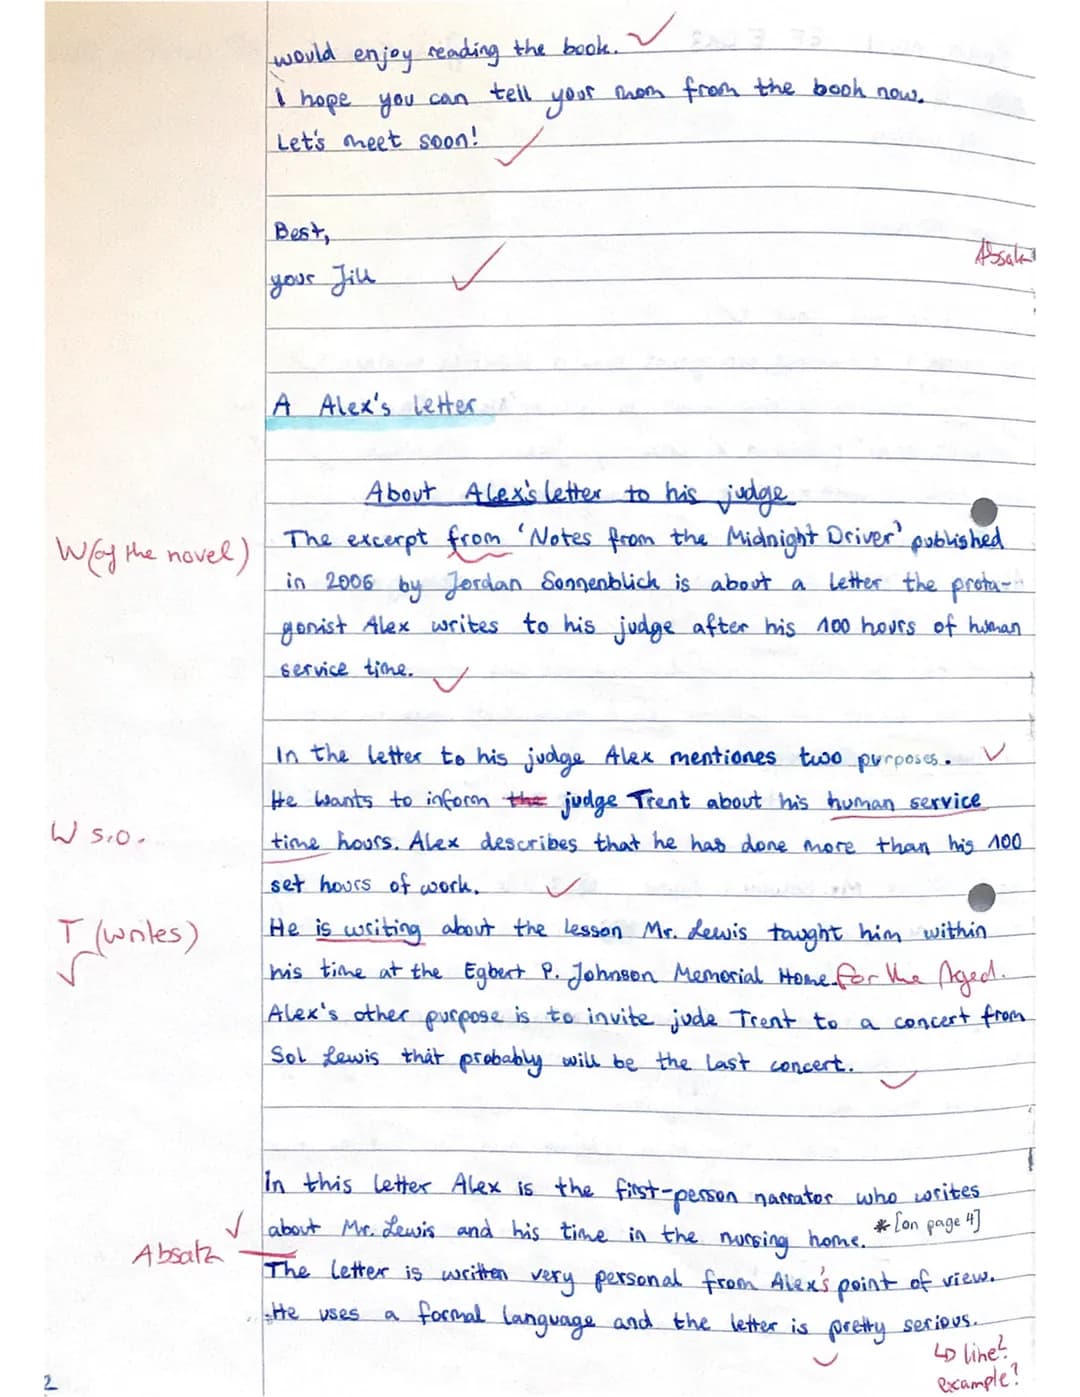 would enjoy reading the book. ✓
I hope you can tell your mom from the book now.
Let's meet soon! ✓
Best,
Absatz
your Jill ✓
A Alex's letter
About Alex's letter to his judge
W(of the novel) The excerpt from 'Notes from the Midnight Driver' published
in 2006 by Jordan Sonnenblich is about a letter the prota-
gonist Alex writes to his judge after his 100 hours of human
service time. ✓
In the letter to his judge Alex mentiones two purposes. ✓
He wants to inform the judge Trent about his human service
W s.o. time hours. Alex describes that he has done more than his 100
set hours of work. ✓
T (writes) He is writing about the lesson Mr. Lewis taught him within
✓ his time at the Egbert P. Johnson Memorial Home for the Aged.
Alex's other purpose is to invite jude Trent to a concert from
Sol Lewis that probably will be the last concert. ✓
In this letter Alex is the first-person narrator who writes
✓ about Mr. Lewis and his time in the nursing home. *[on page 4]
Absatz The letter is written very personal from Alex's point of view.
He uses a formal language and the letter is pretty serious.
✓ ↳ line?
example?
2